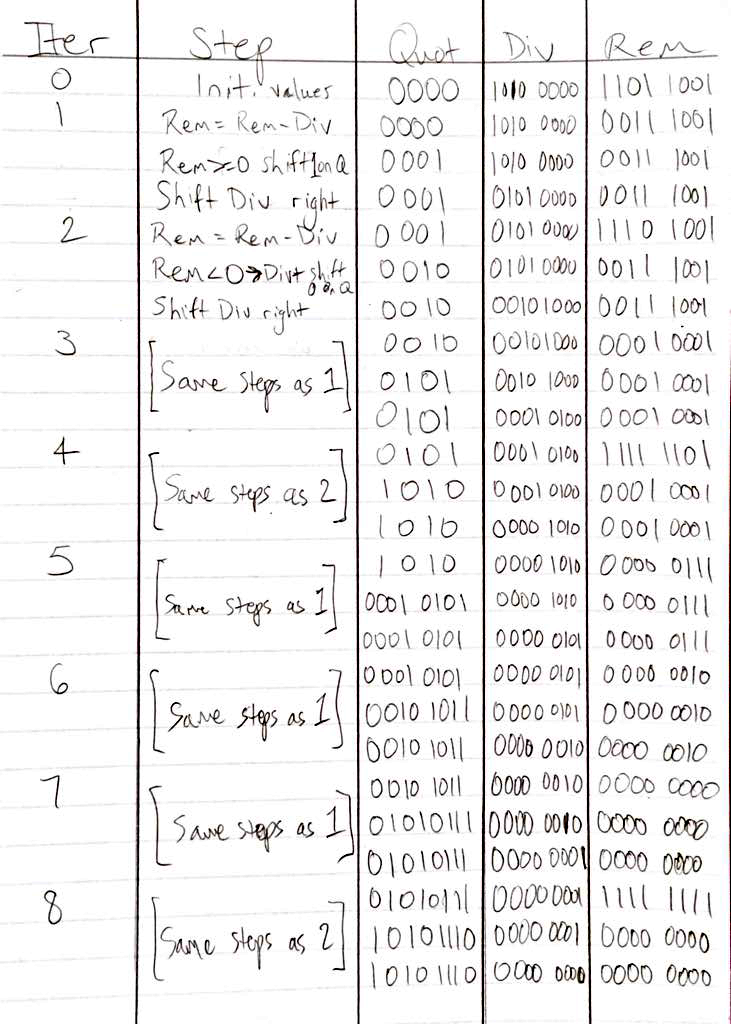 Iter Step Quot Div Rem
0 Init. values 0000 1010 0000 1101 1001
1 Rem = Rem-Div 0000 1010 0000 0011 1001
Rem>=0 shift 1 on Q 0001 1010 0000 0011 1001
Shift Div right 0001 0101 0000 0011 1001
2 Rem = Rem-Div 0001 0101 0000 1110 1001
Rem<0→Div+ shift 0 on Q 0010 0101 0000 0011 1001
Shift Div right 0010 00101000 0011 1001
3 0010 00101000 0001 0001
[Same steps as 1] 0101 0010 1000 0001 0001
0101 0001 0100 0001 0001
4 0101 0001 0100 1111 1101
[Same steps as 2] 1010 0001 0100 0001 0001
1010 0000 1010 0001 0001
5 1010 0000 1010 0000 0111
[Same steps as 1] 0001 0101 0000 1010 0000 0111
0001 0101 0000 0101 0000 0111
6 0001 0101 0000 0101 0000 0010
[Same steps as 1] 0010 1011 0000 0101 0000 0010
0010 1011 0000 0010 0000 0010
7 0010 1011 0000 0010 0000 0000
[Same steps as 1] 01010111 0000 0010 0000 0000
01010111 0000 0001 0000 0000
8 01010111 0000 0001 1111 1111
[Same steps as 2] 10101110 0000 0001 0000 0000
10101110 0000 0000 0000 0000